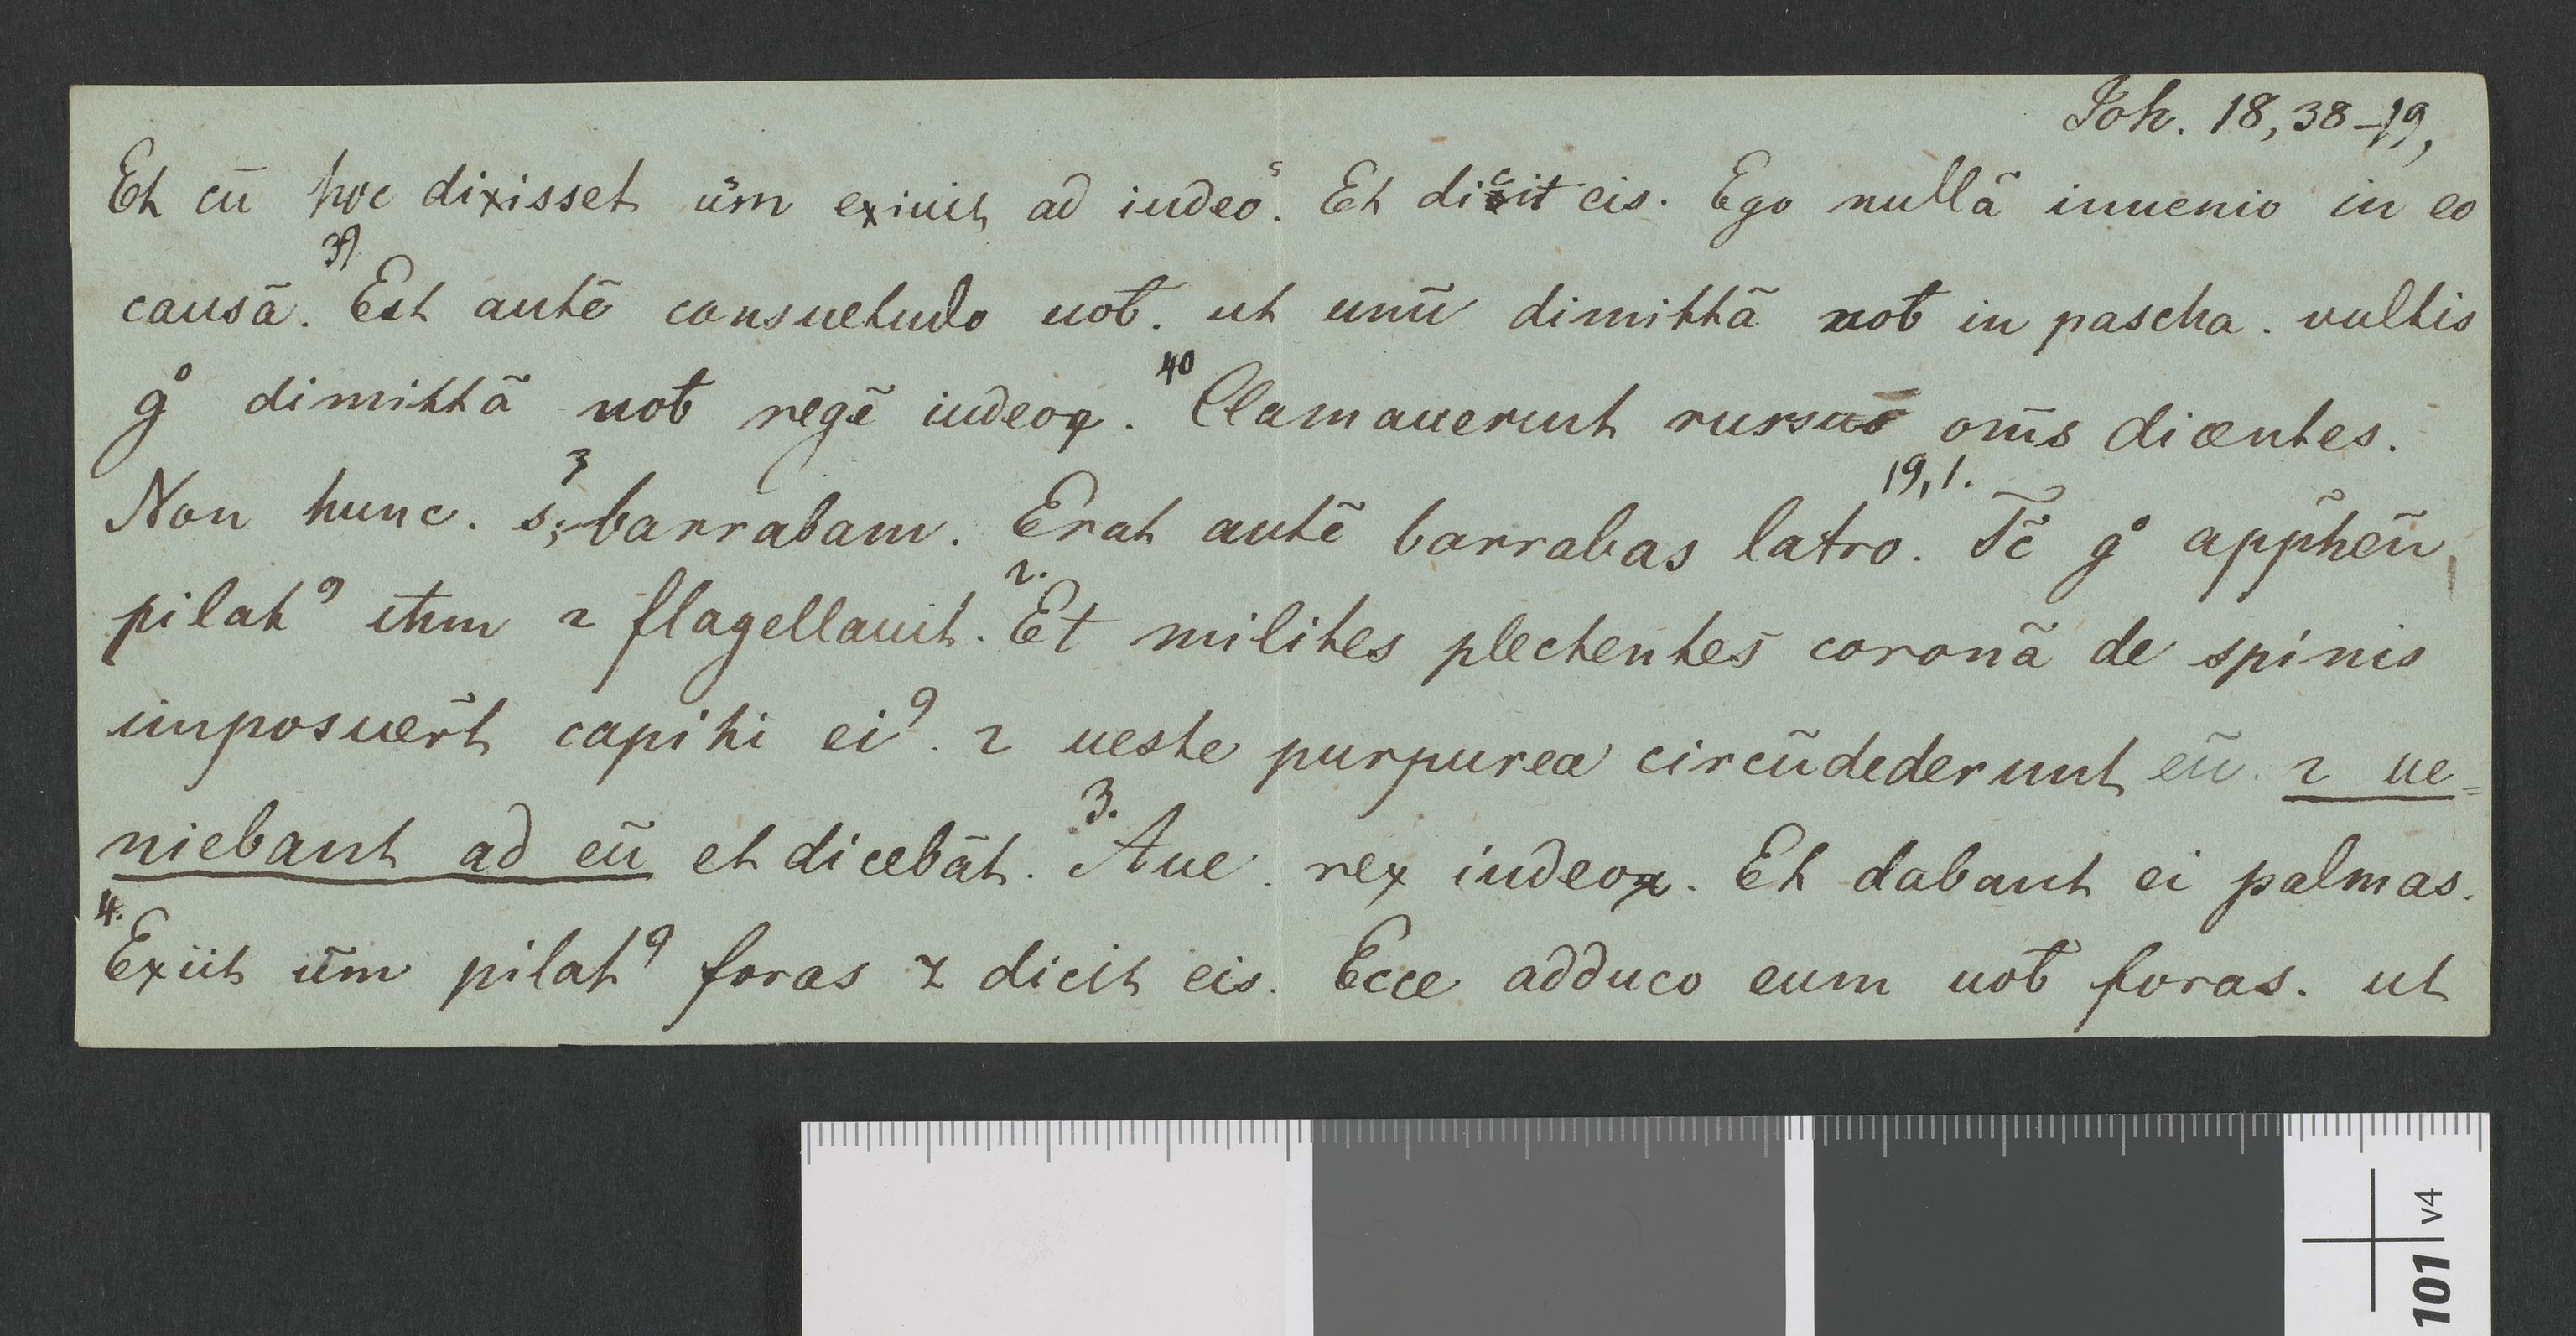 Joh. 18, 38-19,
Et cū hoc dixisset ům exiuit ad iudeoˢ. Et dicit eis. Ego nullā inuenio in eo
causā. 39 Est autē consuetudo uob̄. ut unū dimittā uob̄ in pascha. uultis
g° dimittā uob̄ regē iudeoꝝ. 40 Clamauerunt rursus om̄s dicentes.
Non hunc. s; barrabam. Erat autē barrabas latro. 19,1. Tc̄ g° app̄hēn̄
pilatꝰ ih̄m ⁊ flagellauit. 2. Et milites plectentes coronā de spinis
imposuer̄t capiti eiꝰ. ⁊ ueste purpurea circūdederunt eū. ⁊ ue=
niebant ad eū et dicebāt. 3. Aue. rex iudeoꝝ. Et dabant ei palmas.
4. Exiit ūm pilatꝰ foras ⁊ dicit eis. Ecce adduco eum uob̄ foras. ut
101 v4